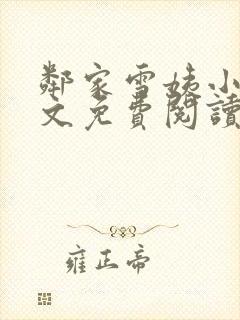 鄰家雪姨小
文免費閱讀
雍正帝